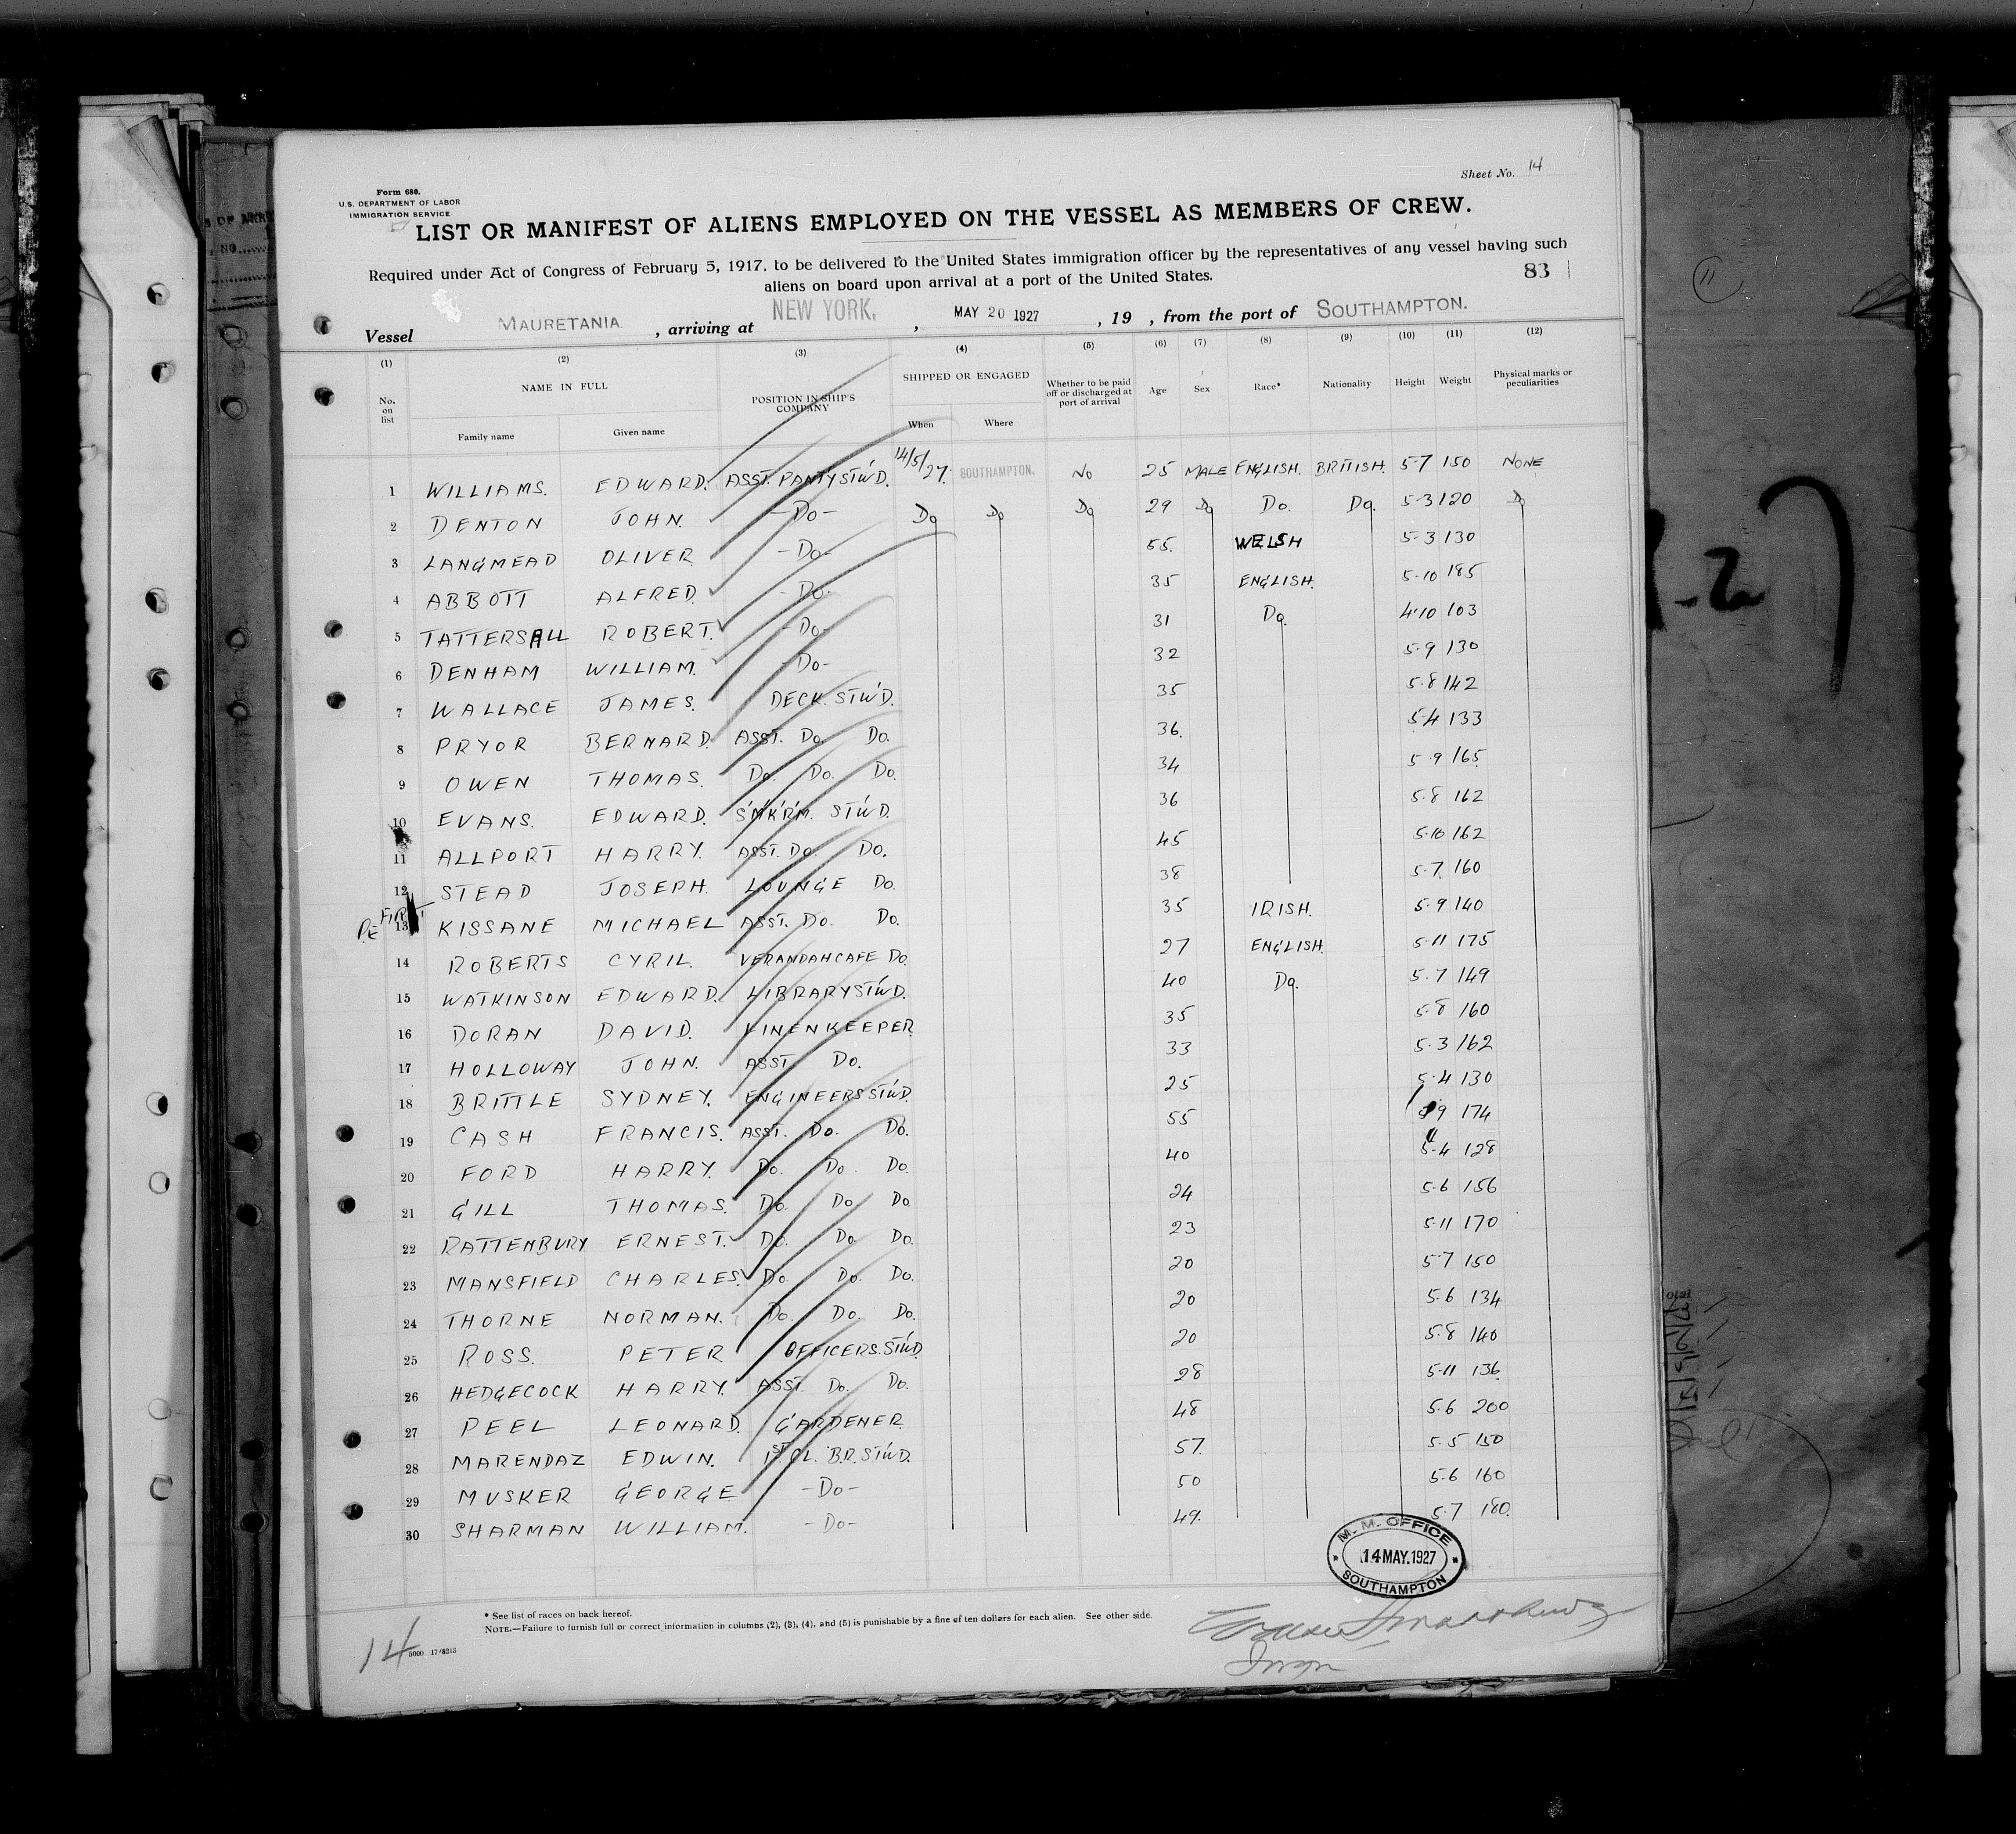 Sheet No. 14
Form 680.
U.S. DEPARTMENT OF LABOR
IMMIGRATION SERVICE
LIST OR MANIFEST OF ALIENS EMPLOYED ON THE VESSEL AS MEMBERS OF CREW.
Required under Act of Congress of February 5, 1917, to be delivered to the United States immigration officer by the representatives of any vessel having such
aliens on board upon arrival at a port of the United States.
83
Vessel MAURETANIA. , arriving at NEW YORK. , MAY 20 1927 , 19 , from the port of SOUTHAMPTON.
(1) (2) (3) (4) (5) (6) (7) (8) (9) (10) (11) (12)
No. on list NAME IN FULL Family name Given name POSITION IN SHIP'S COMPANY SHIPPED OR ENGAGED When Where Whether to be paid off or discharged at port of arrival Age Sex Race* Nationality Height Weight Physical marks or peculiarities
1 WILLIAMS. EDWARD. ASST. PANTY STW'D. 14/5/27. SOUTHAMPTON. No 25 MALE ENGLISH. BRITISH. 5-7 150 NONE
2 DENTON JOHN. -Do- Do Do Do 29 Do Do. Do. 5-3 120 Do
3 LANGMEAD OLIVER -Do- 55. WELSH 5-3 130
4 ABBOTT ALFRED. -Do- 35 ENGLISH. 5-10 185
5 TATTERSALL ROBERT. -Do- 31 Do. 4-10 103
6 DENHAM WILLIAM. -Do- 32 5-9 130
7 WALLACE JAMES. DECK. STW'D. 35 5-8 142
8 PRYOR BERNARD. ASST. Do. Do. 36. 5-4 133
9 OWEN THOMAS. Do. Do. Do. 34 5-9 165
10 EVANS. EDWARD. S'M'K'R'M. STW'D. 36 5-8 162
11 ALLPORT HARRY. ASST. Do. Do. 45 5-10 162
12 STEAD JOSEPH. LOUNGE Do. 38 5-7 160
13 KISSANE MICHAEL ASST. Do. Do. 35 IRISH. 5-9 140
14 ROBERTS CYRIL. VERANDAH CAFE Do. 27 ENGLISH. 5-11 175
15 WATKINSON EDWARD. LIBRARY STW'D. 40 Do. 5-7 149
16 DORAN DAVID. LINENKEEPER 35 5-8 160
17 HOLLOWAY JOHN. ASST. Do. 33 5-3 162
18 BRITTLE SYDNEY. ENGINEERS STW'D. 25 5-4 130
19 CASH FRANCIS. ASST. Do. Do. 55 9 174
20 FORD HARRY. Do. Do. Do. 40 5-4 128
21 GILL THOMAS. Do. Do Do. 24 5-6 156
22 RATTENBURY ERNEST. Do. Do. Do. 23 5-11 170
23 MANSFIELD CHARLES. Do. Do. Do. 20 5-7 150
24 THORNE NORMAN. Do. Do. Do. 20 5-6 134
25 ROSS. PETER OFFICERS. STW'D. 20 5-8 140
26 HEDGECOCK HARRY. ASST. Do. Do. 28 5-11 136
27 PEEL LEONARD. GARDENER. 48 5-6 200
28 MARENDAZ EDWIN. 1ST CL. B.R. STW'D. 57. 5-5 150
29 MUSKER GEORGE -Do- 50 5-6 160
30 SHARMAN WILLIAM. -Do- 49. 5-7 180.
M. M. OFFICE
14 MAY. 1927
SOUTHAMPTON
* See list of races on back hereof.
NOTE.—Failure to furnish full or correct information in columns (2), (3), (4), and (5) is punishable by a fine of ten dollars for each alien. See other side.
14
5000 17/8213